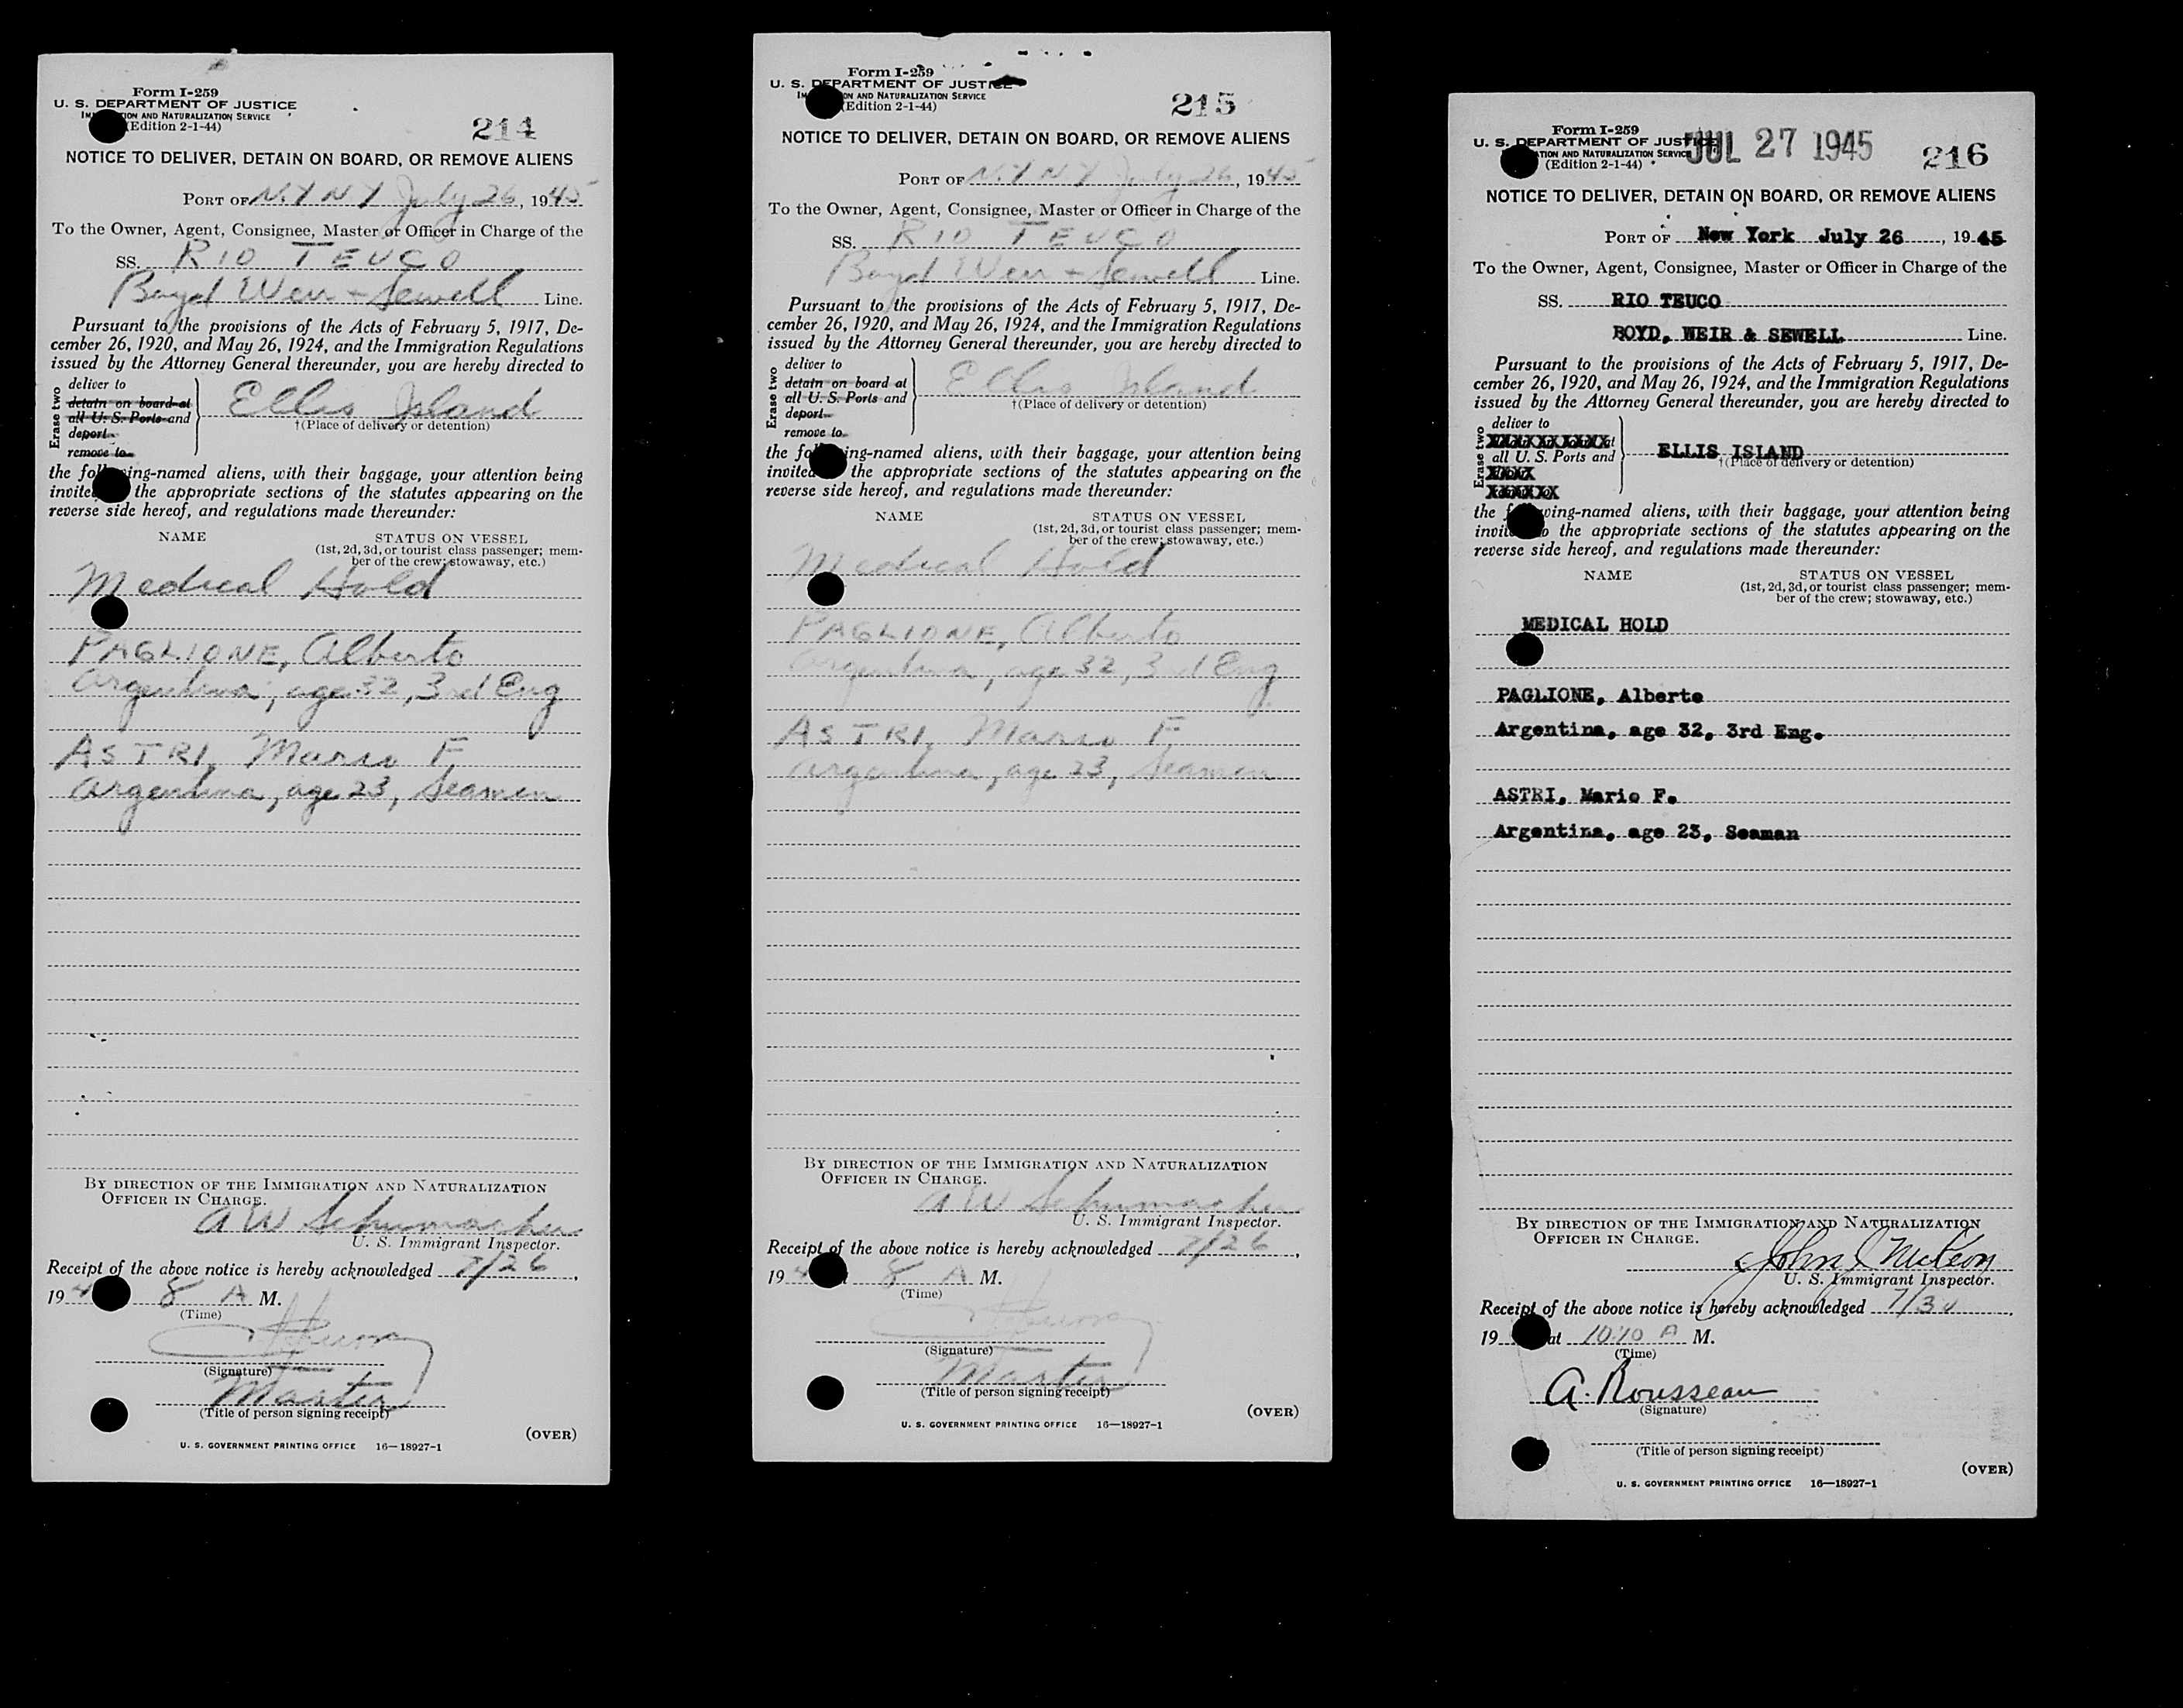 Form I-259
U. S. DEPARTMENT OF JUSTICE
ION AND NATURALIZATION SERVICE
(Edition 2-1-44)
214
NOTICE TO DELIVER, DETAIN ON BOARD, OR REMOVE ALIENS
PORT OF N.Y N Y July 26, 1945
To the Owner, Agent, Consignee, Master or Officer in Charge of the
SS. RIO TEUCO
Boyd Weir - Sewell Line.
Pursuant to the provisions of the Acts of February 5, 1917, De-
cember 26, 1920, and May 26, 1924, and the Immigration Regulations
issued by the Attorney General thereunder, you are hereby directed to
Erase two
deliver to
detain on board at
all U. S. Ports and
deport
remove to
Ellis Island
†(Place of delivery or detention)
the following-named aliens, with their baggage, your attention being
invited the appropriate sections of the statutes appearing on the
reverse side hereof, and regulations made thereunder:
NAME
STATUS ON VESSEL
(1st, 2d, 3d, or tourist class passenger; mem-
ber of the crew; stowaway, etc.)
Medical Hold
PAGLIONE, Alberto
Argentina, age 32, 3rd Eng
ASTRI, Mario F.
Argentina, age 23, Seamen
BY DIRECTION OF THE IMMIGRATION AND NATURALIZATION
OFFICER IN CHARGE.
A W Schumacher
U. S. Immigrant Inspector.
Receipt of the above notice is hereby acknowledged 7/26,
19 4 8 A M.
(Time)
(Signature)
Master
(Title of person signing receipt)
(OVER)
U. S. GOVERNMENT PRINTING OFFICE 16—18927-1
Form I-259
U. S. DEPARTMENT OF JUSTICE
ON AND NATURALIZATION SERVICE
(Edition 2-1-44)
215
NOTICE TO DELIVER, DETAIN ON BOARD, OR REMOVE ALIENS
PORT OF N.Y N Y July 26, 1945
To the Owner, Agent, Consignee, Master or Officer in Charge of the
SS. RIO TEUCO
Boyd Weir - Sewell Line.
Pursuant to the provisions of the Acts of February 5, 1917, De-
cember 26, 1920, and May 26, 1924, and the Immigration Regulations
issued by the Attorney General thereunder, you are hereby directed to
Erase two
deliver to
detain on board at
all U. S. Ports and
deport
remove to
Ellis Island
†(Place of delivery or detention)
the following-named aliens, with their baggage, your attention being
invited the appropriate sections of the statutes appearing on the
reverse side hereof, and regulations made thereunder:
NAME
STATUS ON VESSEL
(1st, 2d, 3d, or tourist class passenger; mem-
ber of the crew; stowaway, etc.)
Medical Hold
PAGLIONE, Alberto
Argentina, age 32, 3rd Eng
ASTRI, Mario F.
Argentina, age 23, Seamen
BY DIRECTION OF THE IMMIGRATION AND NATURALIZATION
OFFICER IN CHARGE.
A W Schumacher
U. S. Immigrant Inspector.
Receipt of the above notice is hereby acknowledged 7/26,
19 4 8 A M.
(Time)
(Signature)
Master
(Title of person signing receipt)
(OVER)
U. S. GOVERNMENT PRINTING OFFICE 16—18927-1
Form I-259
U. S. DEPARTMENT OF JUSTICE
ATION AND NATURALIZATION SERVICE
(Edition 2-1-44)
JUL 27 1945
216
NOTICE TO DELIVER, DETAIN ON BOARD, OR REMOVE ALIENS
PORT OF New York July 26, 1945
To the Owner, Agent, Consignee, Master or Officer in Charge of the
SS. RIO TEUCO
BOYD, WEIR & SEWELL Line.
Pursuant to the provisions of the Acts of February 5, 1917, De-
cember 26, 1920, and May 26, 1924, and the Immigration Regulations
issued by the Attorney General thereunder, you are hereby directed to
Erase two
deliver to
all U. S. Ports and
ELLIS ISLAND
†(Place of delivery or detention)
the following-named aliens, with their baggage, your attention being
invited to the appropriate sections of the statutes appearing on the
reverse side hereof, and regulations made thereunder:
NAME
STATUS ON VESSEL
(1st, 2d, 3d, or tourist class passenger; mem-
ber of the crew; stowaway, etc.)
MEDICAL HOLD
PAGLIONE, Alberto
Argentina, age 32, 3rd Eng.
ASTRI, Mario F.
Argentina, age 23, Seaman
BY DIRECTION OF THE IMMIGRATION AND NATURALIZATION
OFFICER IN CHARGE.
John
U. S. Immigrant Inspector.
Receipt of the above notice is hereby acknowledged 7/30,
19 at 10:10 A M.
(Time)
A. Rousseau
(Signature)
(Title of person signing receipt)
(OVER)
U. S. GOVERNMENT PRINTING OFFICE 16—18927-1